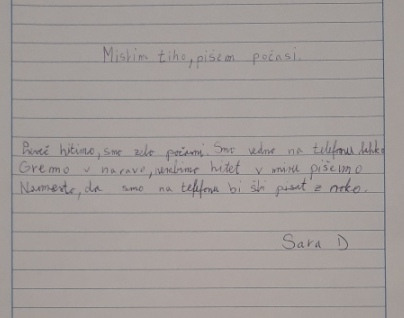 Mislim tiho, pišem počasi.
Preveč hitimo, smo zelo počasni. Smo vedno na telefonu lahko
Gremo v naravo, nimimo hitet v miru pišemo
Namesto, da smo na telefonu bi šli pisat z roko.
Sara D